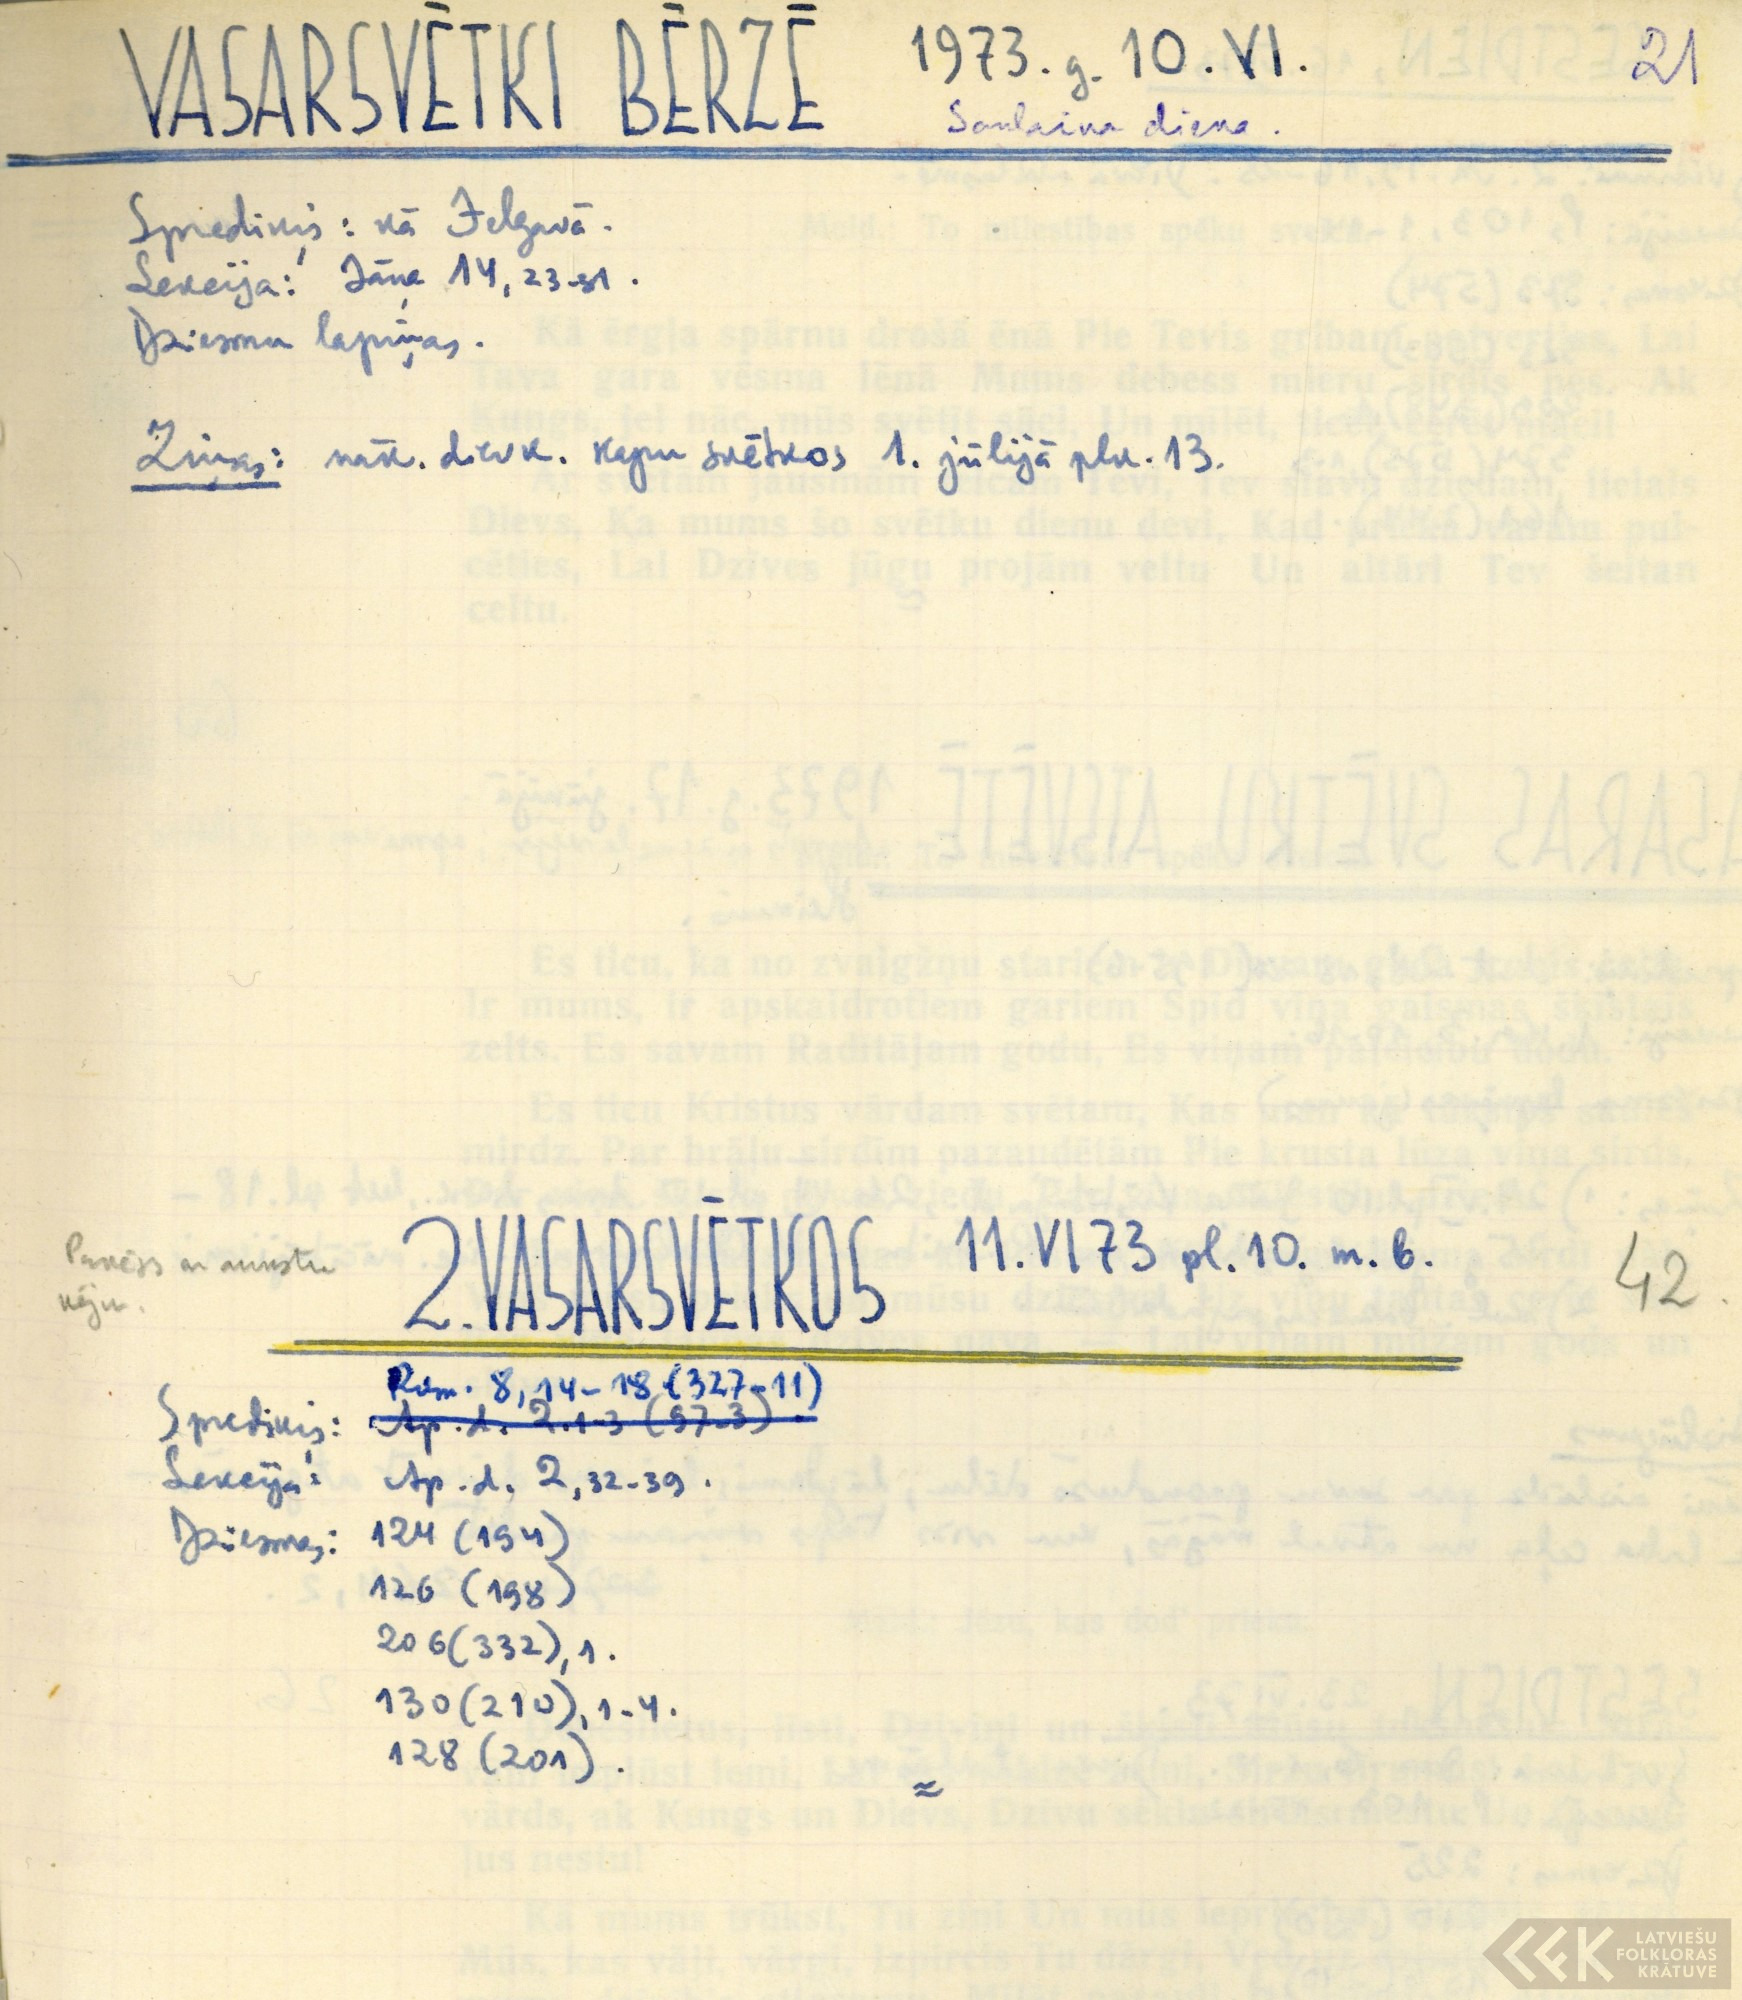 VASARSVĒTKI BĒRZĒ 1973. g. 10. VI. 21
Saulaina diena.
Sprediķis: kā Jelgavā.
Lekcija: Jāņa 14, 23-31.
Dziesmu lapiņas.
Ziņas: nāk. dievk. kapu svētkos 1. jūlijā plk. 13.
2. VASARSVĒTKOS 11. VI 73 pl. 10. m. b. 42.
ar aukstu
kāju.
Rom. 8, 14-18 (327-11)
Sprediķis: Ap. d. 2. 1-3 (97-3).
Lekcija: Ap. d. 2, 32-39.
Dziesmas: 124 (194)
126 (198)
206 (332), 1.
130 (210), 1-4.
128 (201).
≈
LATVIEŠU
FOLKLORAS
KRĀTUVE